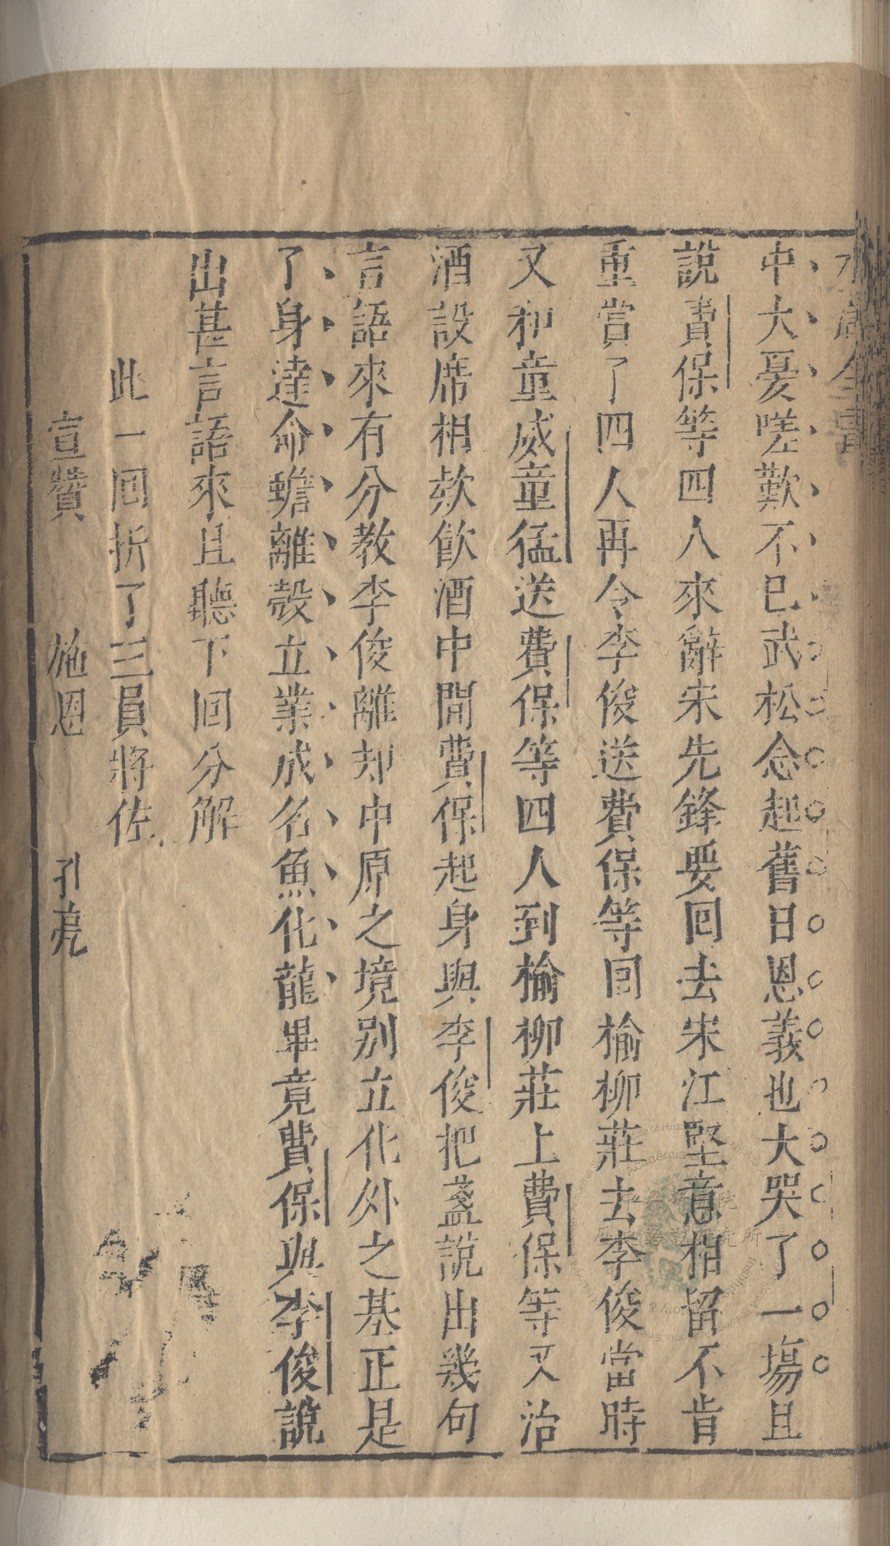 水滸全書
中大憂嗟歎不已武松念起舊日恩義也大哭了一場且
說費保等四人來辭宋先鋒要回去宋江堅意相留不肯
重賞了四人再令李俊送費保等回榆柳莊去李俊當時
又和童威童猛送費保等四人到榆柳莊上費保等又治
酒設席相欵飲酒中間費保起身與李俊把盞說出幾句
言語來有分教李俊離却中原之境別立化外之基正是
了身達命蟾離殼立業成名魚化龍畢竟費保與李俊說
出甚言語來且聽下回分解
此一回折了三員將佐
宣贊 施恩 孔亮